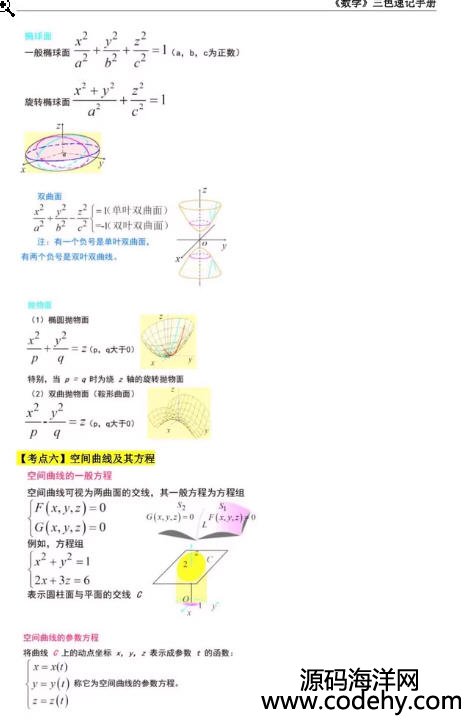 《数学》三色速记手册
椭球面
一般椭球面 x²/a² + y²/b² + z²/c² = 1 (a, b, c为正数)
旋转椭球面 (x² + y²)/a² + z²/c² = 1
z
o
x y
双曲面
x²/a² + y²/b² - z²/c² {=1(单叶双曲面)
=-1(双叶双曲面)
注：有一个负号是单叶双曲面，
有两个负号是双叶双曲线。
z
o
x y
抛物面
（1）椭圆抛物面
x²/p + y²/q = z (p, q大于0)
z
x y
特别，当 p = q 时为绕 z 轴的旋转抛物面
（2）双曲抛物面（鞍形曲面）
x²/p - y²/q = z (p, q大于0)
z
x y
【考点六】空间曲线及其方程
空间曲线的一般方程
空间曲线可视为两曲面的交线，其一般方程为方程组
{F(x, y, z) = 0
G(x, y, z) = 0
S₂ S₁
G(x, y, z) = 0 F(x, y, z) = 0
L
例如，方程组
{x² + y² = 1
2x + 3z = 6
z
2 C
O
1 y
x
表示圆柱面与平面的交线 C
空间曲线的参数方程
将曲线 C 上的动点坐标 x, y, z 表示成参数 t 的函数：
{x = x(t)
y = y(t) 称它为空间曲线的参数方程。
z = z(t)
源码海洋网
www.codehy.com